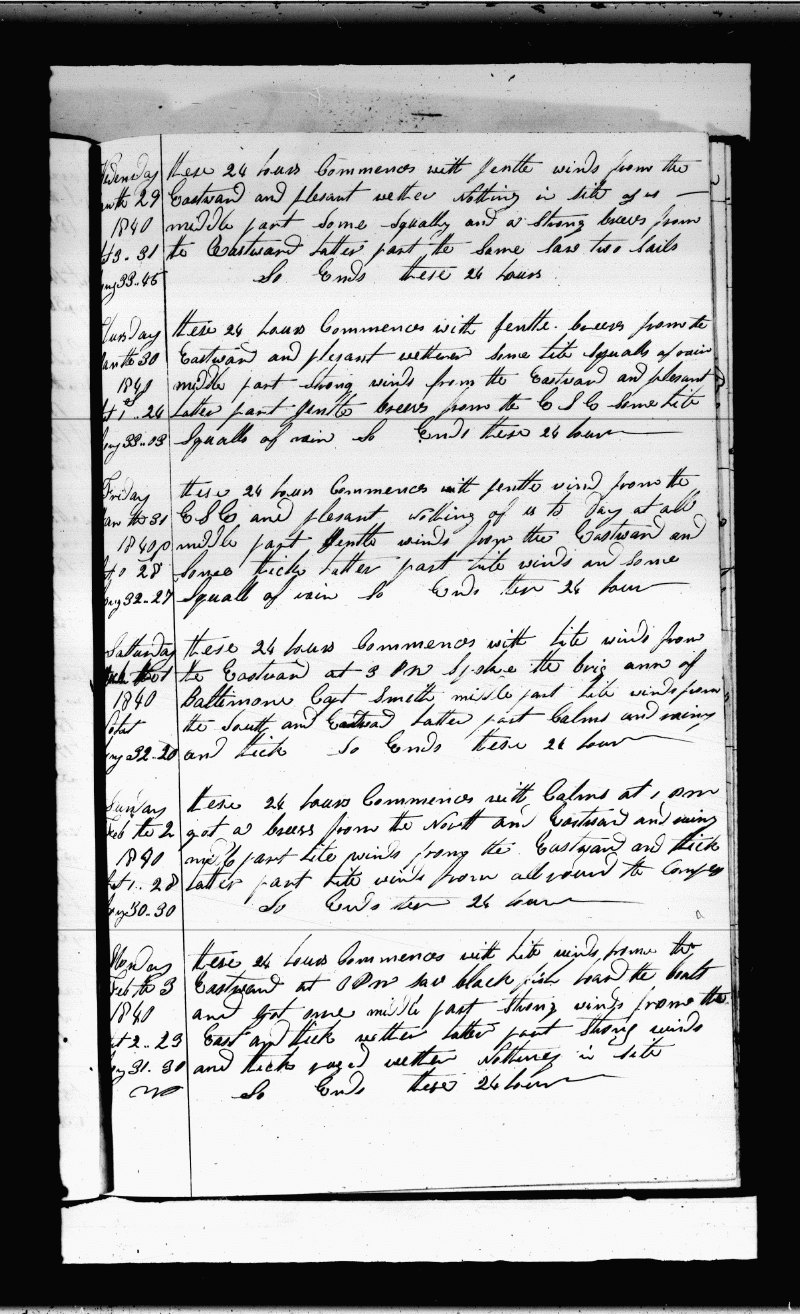 Wedensday these 24 hours Commences with Jentle winds from the
Jan the 29 Eastward and plesant wether Nothing in site of us
1840 middle part some squally and a strong breeis from
Lat 3..31 the Eastward Latter part the same saw two sails
Long 33..45 So Ends these 24 hours
Thursday these 24 hours Commences with Jentle breeis from the
Jan the 30 Eastward and plesant wether some lite squalls of rain
1840 middle part strong winds from the Eastward and plesant
Lat 1..24 Latter part Jentle breeis from the E S E some lite
Long 33..03 squalls of rain So Ends these 24 hours
Friday these 24 hours Commences with Jentle wind from the
Jan the 31 E S E and plesant nothing of us to day at all
1840 middle part Jentle winds from the Eastward and
Lat 0 28 some thick Latter part Lite winds and some
Long 32..27 squall of rain So Ends thes 24 hours
Saturday these 24 hours Commences with Lite winds from
Feb the 1 the Eastward at 3 PM Spoke the brig ann of
1840 Baltimore Capt Smith middle part Lite winds from
the South and Eastward Latter part Calms and rainy
Long 32..20 and thick So Ends these 24 hours
Sunday these 24 hours Commences with Calms at 1 PM
Feb the 2 got a breeis from the North and Eastward and rainy
1840 middle part Lite winds from the Eastward and thick
Lat 1..28 Latter part Lite winds from all round the Compas
Long 30..30 So Ends thes 24 hours
Monday these 24 hours Commences with Lite winds from the
Feb the 3 Eastward at PM saw black fish loard the boats
1840 and got one middle part strong winds from the
Lat 2..23 East and thick wether latter part strong winds
Long 31..30 and thick ruged wether Nothing in site
So Ends these 24 hours